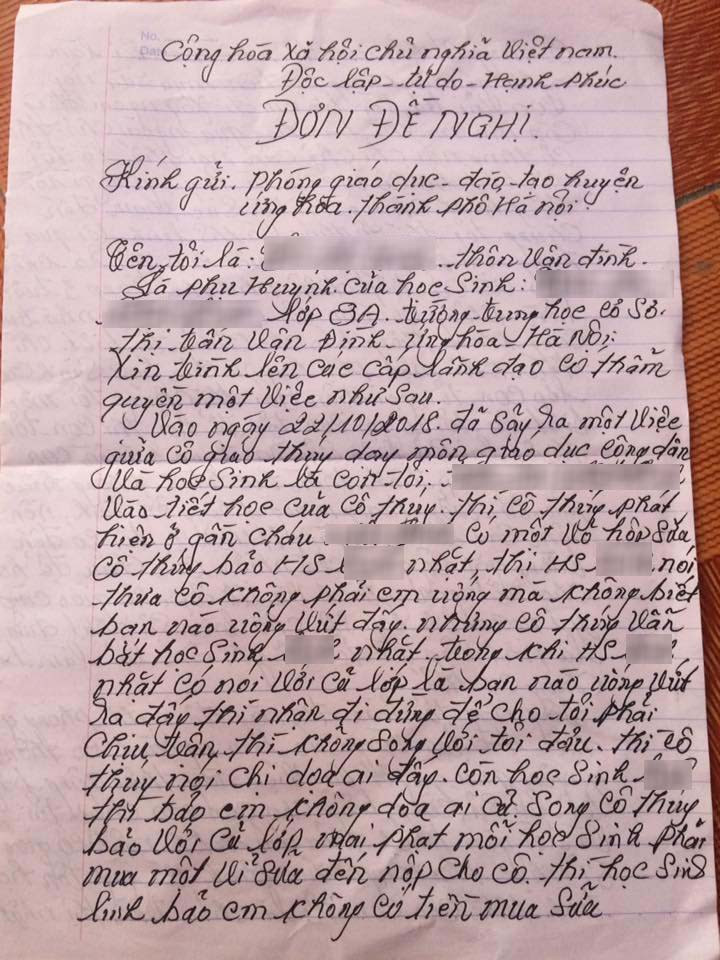 No.
Dat
Cộng hóa xã hội chủ nghĩa Việt nam.
Độc lập - tự do - Hạnh phúc
ĐƠN ĐỀ NGHỊ.
Kính gửi. Phòng giáo dục - đào - tạo huyện
ứng hòa. thành phố Hà nội.
Tên tôi là: thôn Vân đình.
Là phụ Huynh của học Sinh:
lớp 8A. trường trung học cơ Sở.
thị trấn Vân Đình - ứng hòa - Hà Nội.
Xin trình lên các cấp lãnh đạo có thẩm
quyền một Việc như Sau.
Vào ngày 22/10/2018. đã Sảy ra một Việc
giữa cô giáo thủy dạy môn giáo dục công dân
Và học Sinh là con tôi.
Vào tiết học của cô thủy. thì cô thủy phát
hiện ở gần cháu có một Vỏ hộp Sữa
cô thủy bảo HS nhặt, thì HS nói
thưa cô không phải em uống mà không biết
bạn nào uống Vứt đấy. nhưng cô thủy Vẫn
bắt học Sinh nhặt. trong khi HS
nhặt có nói Với cả lớp là bạn nào uống Vứt
Ra đấy thì nhận đi đừng để cho tôi phải
chịu trận, thì không Song Với tôi đâu. thì cô
thủy nói chị dọa ai đấy. còn học Sinh
thì bảo em không dọa ai cả Song cô thủy
bảo Với cả lớp mai phạt mỗi học Sinh phải
mua một Vỉ Sữa đến nộp cho cô. thì học Sinh
linh bảo em không có tiền mua Sữa